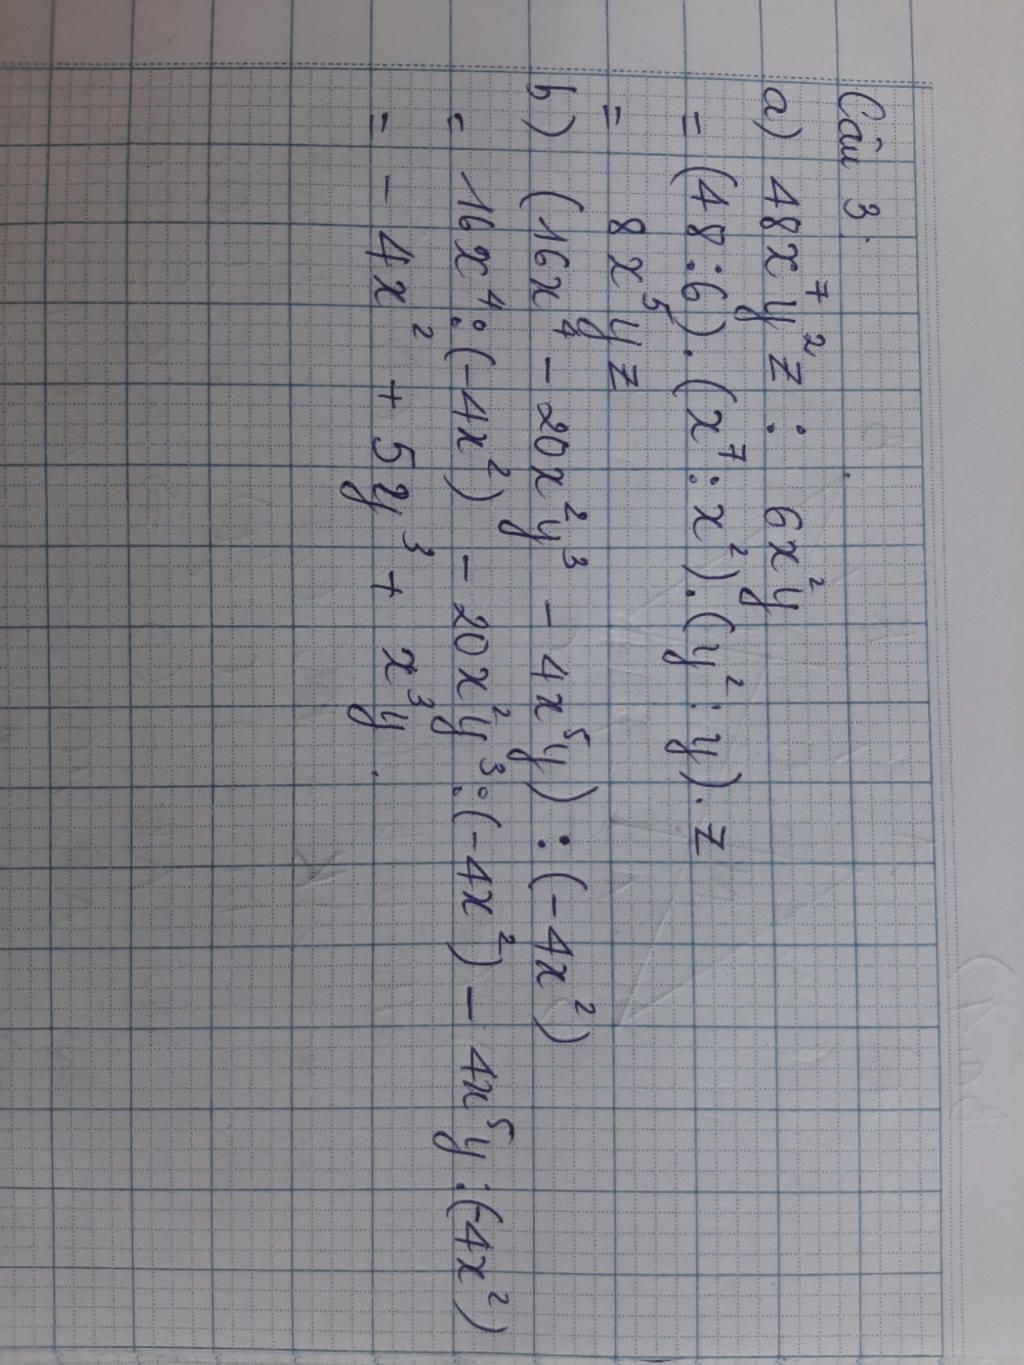 Câu 3.
a) 48x⁷y²z : 6x²y
= (48:6).(x⁷:x²).(y²:y).z
= 8x⁵yz
b) (16x⁴ - 20x²y³ - 4x⁵y) : (-4x²)
= 16x⁴:(-4x²) - 20x²y³:(-4x²) - 4x⁵y:(-4x²)
= - 4x² + 5y³ + x³y.